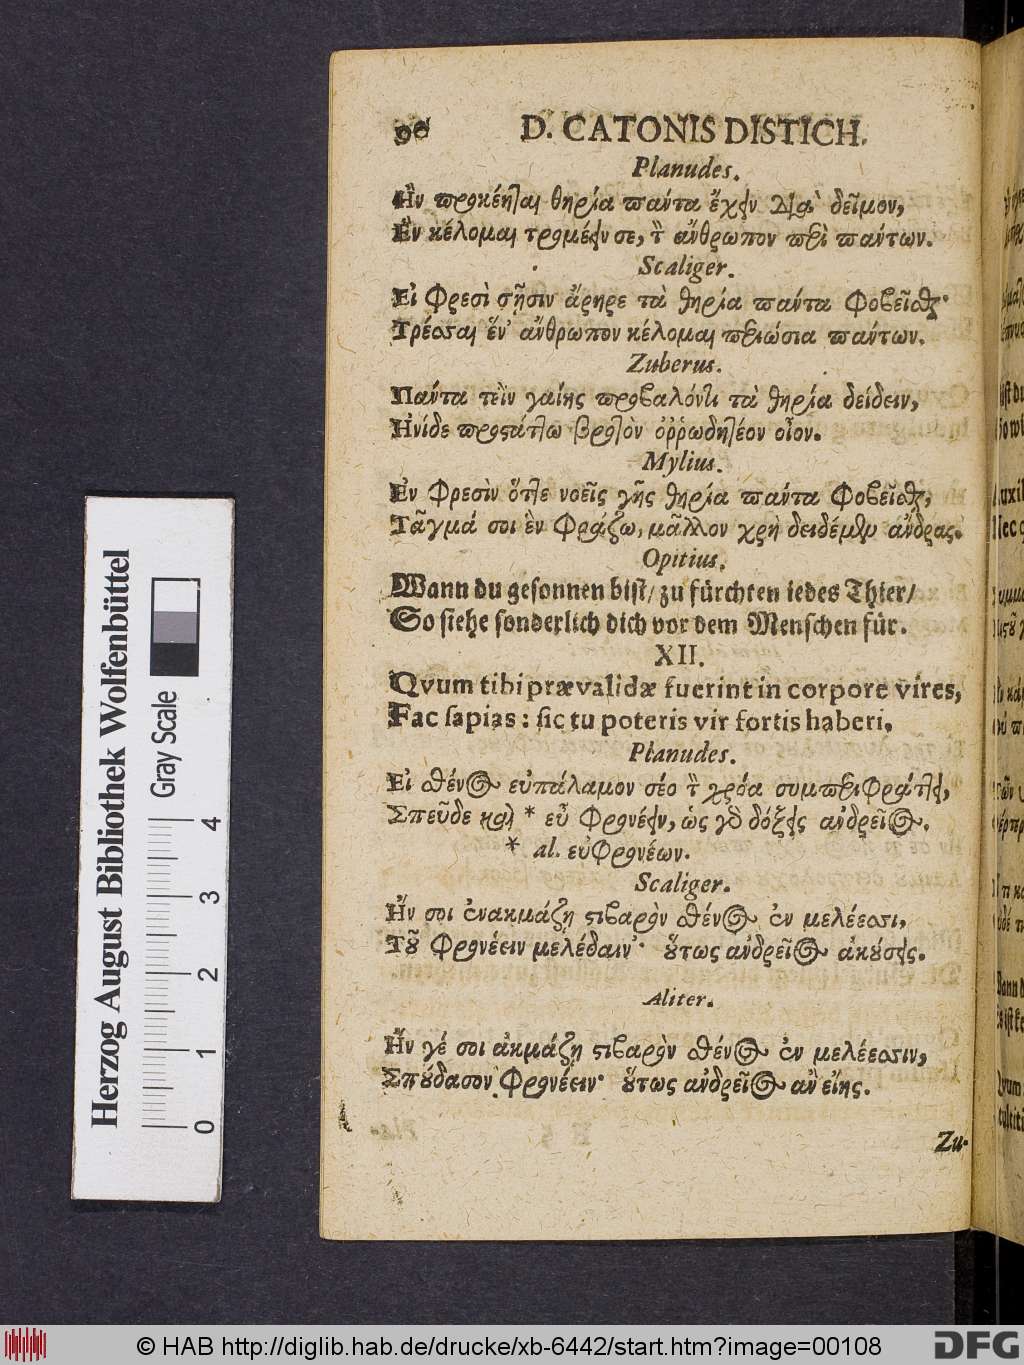 90 D. CATONIS DISTICH.
Planudes.
Ἢν προκέηται θηρία πάντα ἔχειν διὰ δεῖμον,
Ἓν κέλομαι τρομέειν σε, τὸν ἄνθρωπον περὶ πάντων.
Scaliger.
Εἰ φρεσὶ σῇσιν ἄρηρε τὰ θηρία πάντα φοβεῖσθαι·
Τρέσσαι ἕν' ἄνθρωπον κέλομαι περιώσια πάντων.
Zuberus.
Πάντα τεῒν γαίης προβαλόντι τὰ θηρία δείδειν,
Ἠνίδε προστάττω βροτὸν ὀῤῥωδητέον οἶον.
Mylius.
Ἐν φρεσὶν ὅττε νοεῖς γῆς θηρία πάντα φοβεῖσθαι,
Τᾶγμά σοι ἓν φράζω, μᾶλλον χρὴ δειδέμεν ἄνδρας.
Opitius.
Wann du gesonnen bist/ zu fürchten iedes Thier/
So siehe sonderlich dich vor dem Menschen für.
XII.
Qvum tibi prævalidæ fuerint in corpore vires,
Fac sapias: sic tu poteris vir fortis haberi.
Planudes.
Εἰ σθένος εὐπάλαμον σέο τὸν χρόα συμπεριφράττει,
Σπεῦδε καὶ * εὖ φρονέειν, ὡς γὸ δόξεις ἀνδρεῖος.
* al. εὐφρονέων.
Scaliger.
Ἤν σοι ἐνακμάζῃ στιβαρὸν σθένος ἐν μελέεσσι,
Τοῦ φρονέειν μελέδαιν'· οὕτως ἀνδρεῖος ἀκούσεις.
Aliter.
Ἤν γέ σοι ἀκμάζῃ στιβαρὸν σθένος ἐν μελέεσσιν,
Σπούδασον φρονέειν· οὕτως ἀνδρεῖος ἂν εἴης.
Zu-
Herzog August Bibliothek Wolfenbüttel
Gray Scale
0 1 2 3 4
© HAB http://diglib.hab.de/drucke/xb-6442/start.htm?image=00108
DFG